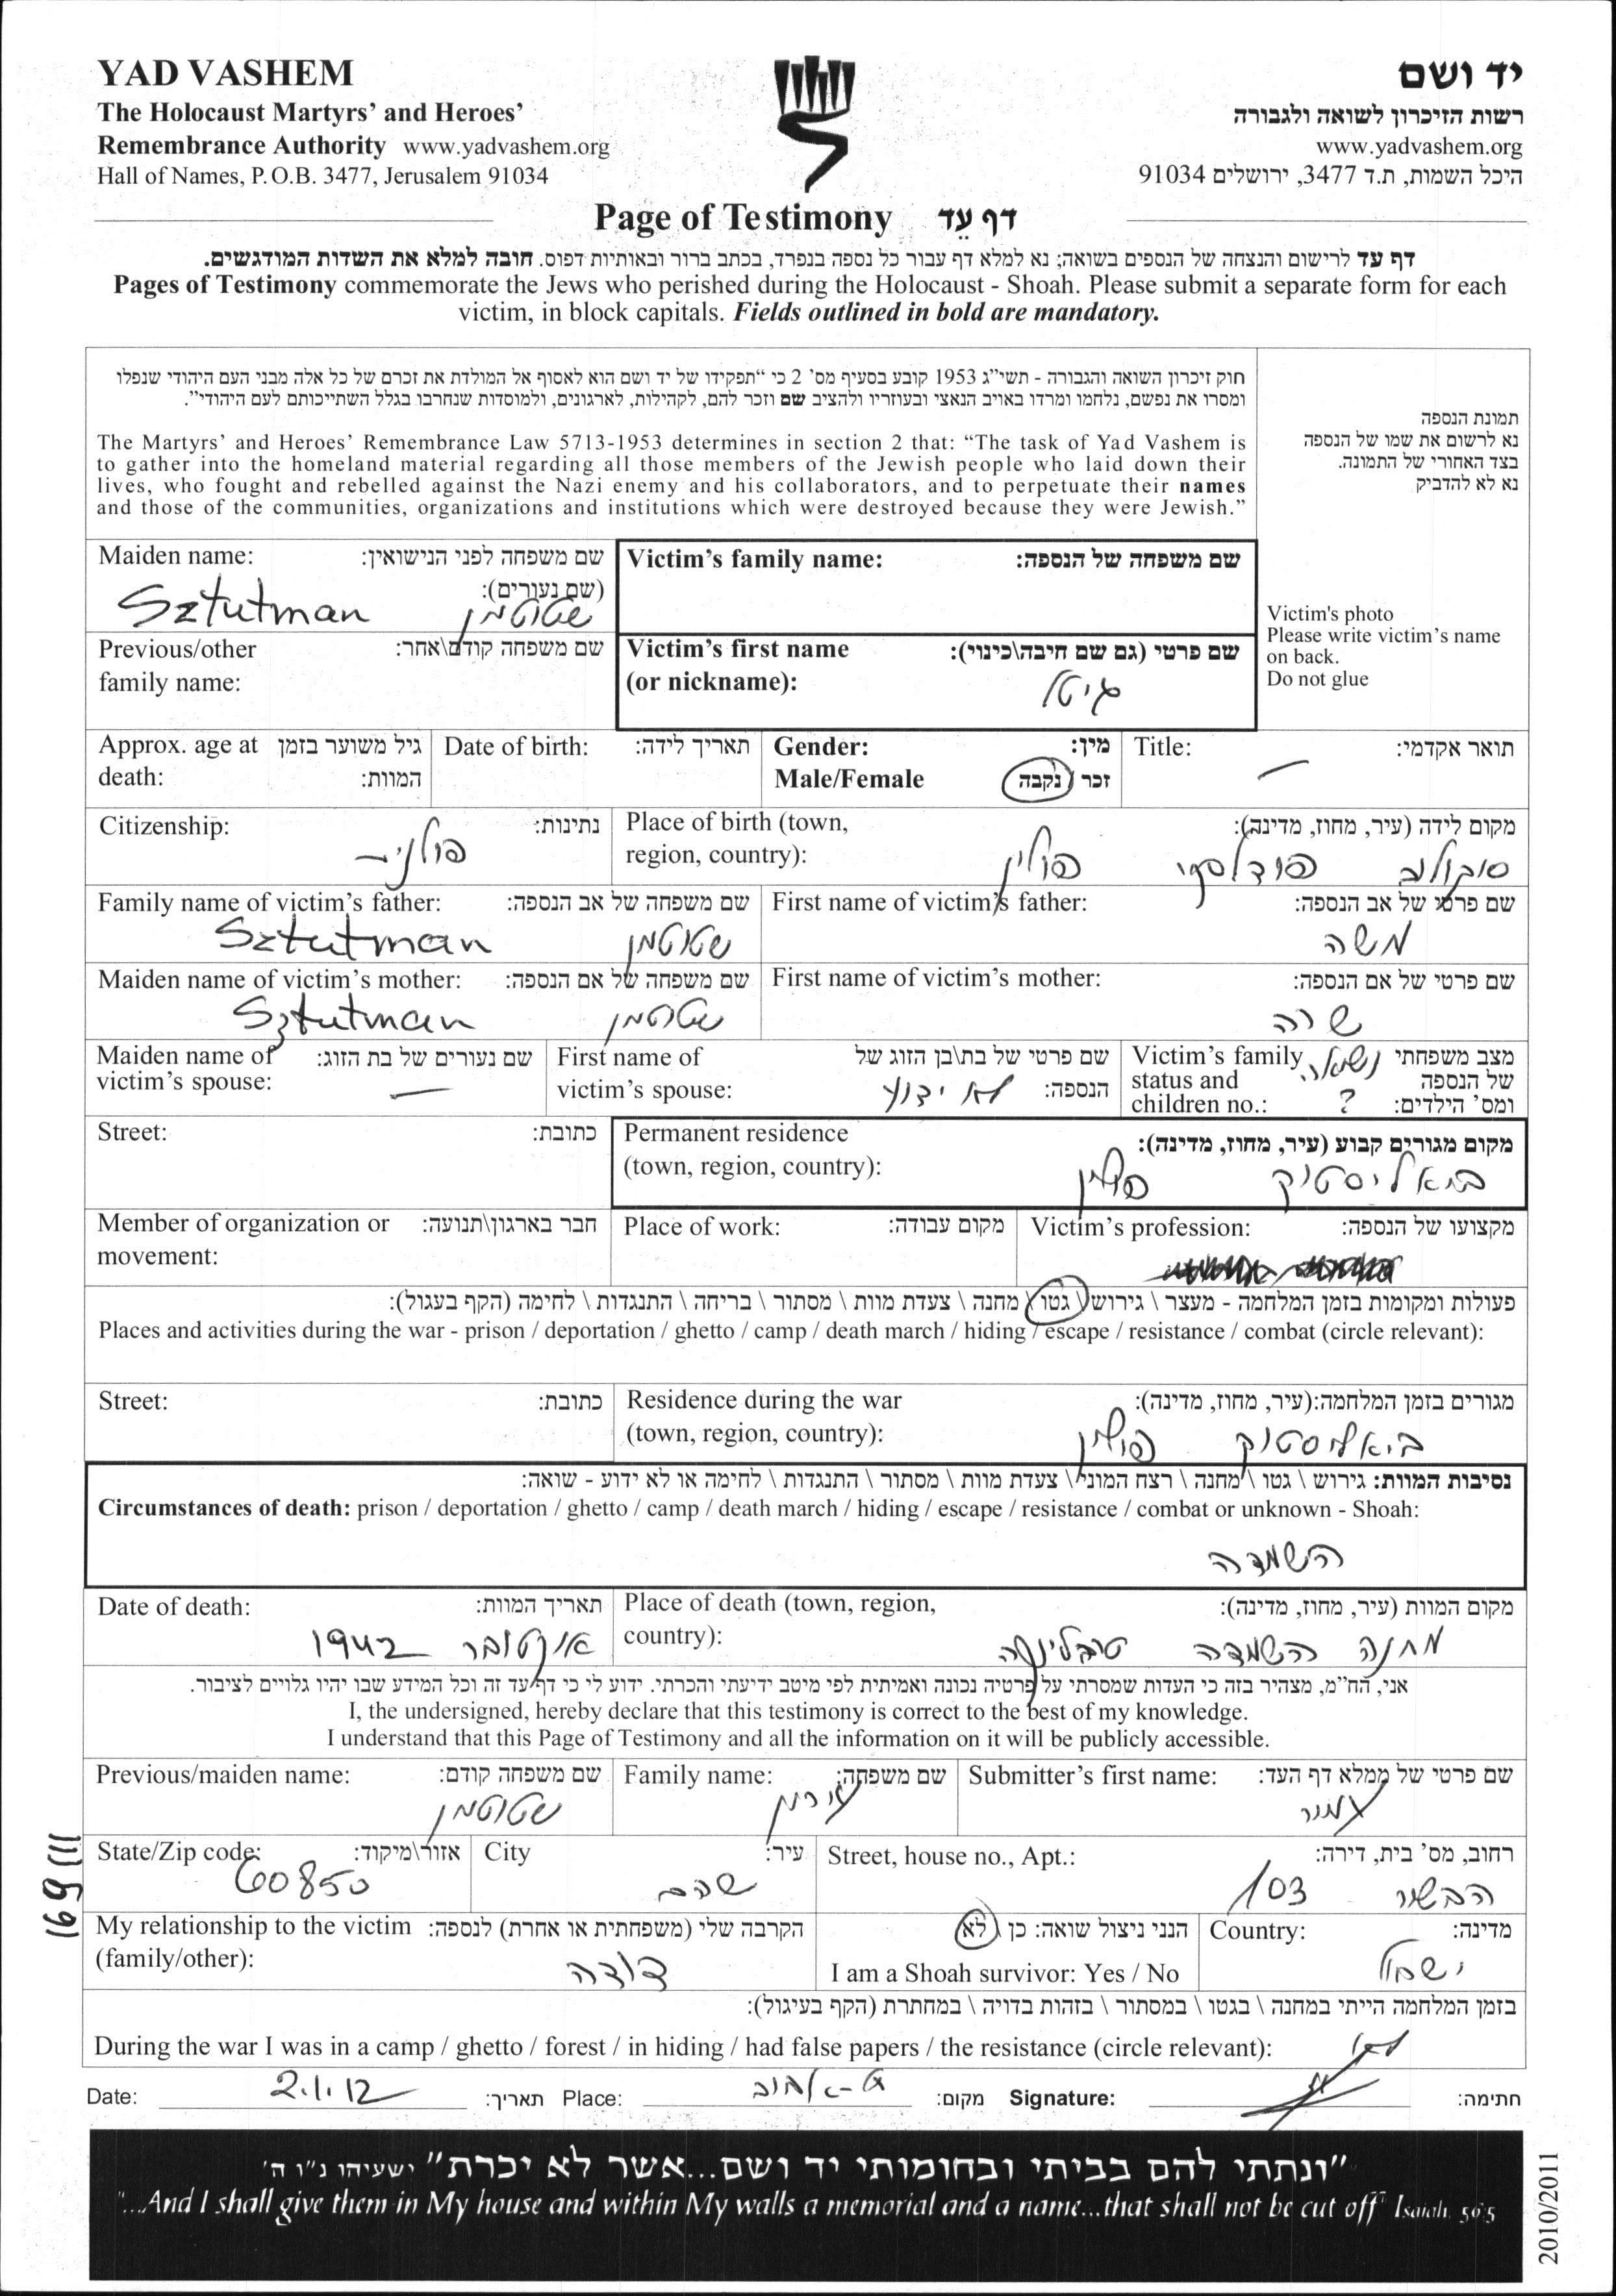 YAD VASHEM
The Holocaust Martyrs' and Heroes'
Remembrance Authority www.yadvashem.org
Hall of Names, P.O.B. 3477, Jerusalem 91034
יד ושם
רשות הזיכרון לשואה ולגבורה
www.yadvashem.org
היכל השמות, ת.ד 3477, ירושלים 91034
Page of Testimony דף עֵד
דף עד לרישום והנצחה של הנספים בשואה; נא למלא דף עבור כל נספה בנפרד, בכתב ברור ובאותיות דפוס. חובה למלא את השדות המודגשים.
Pages of Testimony commemorate the Jews who perished during the Holocaust - Shoah. Please submit a separate form for each
victim, in block capitals. Fields outlined in bold are mandatory.
חוק זיכרון השואה והגבורה - תשי"ג 1953 קובע בסעיף מס' 2 כי "תפקידו של יד ושם הוא לאסוף אל המולדת את זכרם של כל אלה מבני העם היהודי שנפלו
ומסרו את נפשם, נלחמו ומרדו באויב הנאצי ובעוזריו ולהציב שם וזכר להם, לקהילות, לארגונים, ולמוסדות שנחרבו בגלל השתייכותם לעם היהודי".
The Martyrs' and Heroes' Remembrance Law 5713-1953 determines in section 2 that: "The task of Yad Vashem is
to gather into the homeland material regarding all those members of the Jewish people who laid down their
lives, who fought and rebelled against the Nazi enemy and his collaborators, and to perpetuate their names
and those of the communities, organizations and institutions which were destroyed because they were Jewish."
תמונת הנספה
נא לרשום את שמו של הנספה
בצד האחורי של התמונה.
נא לא להדביק
Victim's photo
Please write victim's name
on back.
Do not glue
Maiden name: שם משפחה לפני הנישואין:
(שם נעורים):
Sztutman שטוטמן
Victim's family name: שם משפחה של הנספה:
Previous/other שם משפחה קודם\אחר:
family name:
Victim's first name שם פרטי (גם שם חיבה\כינוי):
(or nickname): גיטל
Approx. age at גיל משוער בזמן
death: המוות:
Date of birth: תאריך לידה:
Gender: מין:
Male/Female זכר / נקבה
Title: תואר אקדמי:
—
Citizenship: נתינות:
פולניה
Place of birth (town, מקום לידה (עיר, מחוז, מדינה):
region, country): סוקולוב פודלסקי פולין
Family name of victim's father: שם משפחה של אב הנספה:
Sztutman שטוטמן
First name of victim's father: שם פרטי של אב הנספה:
משה
Maiden name of victim's mother: שם משפחה של אם הנספה:
Sztutman שטוטמן
First name of victim's mother: שם פרטי של אם הנספה:
שרה
Maiden name of שם נעורים של בת הזוג:
victim's spouse: —
First name of שם פרטי של בת\בן הזוג של
victim's spouse: הנספה: לא ידוע
Victim's family מצב משפחתי נשואה
status and של הנספה
children no.: ומס' הילדים: ?
Street: כתובת:
Permanent residence מקום מגורים קבוע (עיר, מחוז, מדינה):
(town, region, country): ביאליסטוק פולין
Member of organization or חבר בארגון\תנועה:
movement:
Place of work: מקום עבודה:
Victim's profession: מקצועו של הנספה:
פעולות ומקומות בזמן המלחמה - מעצר \ גירוש \ גטו \ מחנה \ צעדת מוות \ מסתור \ בריחה \ התנגדות \ לחימה (הקף בעגול):
Places and activities during the war - prison / deportation / ghetto / camp / death march / hiding / escape / resistance / combat (circle relevant):
Street: כתובת:
Residence during the war מגורים בזמן המלחמה:(עיר, מחוז, מדינה):
(town, region, country): ביאליסטוק פולין
נסיבות המוות: גירוש \ גטו \ מחנה \ רצח המוני \ צעדת מוות \ מסתור \ התנגדות \ לחימה או לא ידוע - שואה:
Circumstances of death: prison / deportation / ghetto / camp / death march / hiding / escape / resistance / combat or unknown - Shoah:
השמדה
Date of death: תאריך המוות:
אוקטובר 1942
Place of death (town, region, מקום המוות (עיר, מחוז, מדינה):
country): מחנה השמדה טרבלינקה
אני, הח"מ, מצהיר בזה כי העדות שמסרתי על פרטיה נכונה ואמיתית לפי מיטב ידיעתי והכרתי. ידוע לי כי דף עד זה וכל המידע שבו יהיו גלויים לציבור.
I, the undersigned, hereby declare that this testimony is correct to the best of my knowledge.
I understand that this Page of Testimony and all the information on it will be publicly accessible.
Previous/maiden name: שם משפחה קודם:
שטוטמן
Family name: שם משפחה:
Submitter's first name: שם פרטי של ממלא דף העד:
State/Zip code: אזור\מיקוד:
60850
City עיר:
שהם
Street, house no., Apt.: רחוב, מס' בית, דירה:
הבשור 103
My relationship to the victim הקרבה שלי (משפחתית או אחרת) לנספה:
(family/other): דודה
הנני ניצול שואה: כן \ לא
I am a Shoah survivor: Yes / No
Country: מדינה:
ישראל
בזמן המלחמה הייתי במחנה \ בגטו \ במסתור \ בזהות בדויה \ במחתרת (הקף בעיגול):
During the war I was in a camp / ghetto / forest / in hiding / had false papers / the resistance (circle relevant): לא
Date: 2.1.12 תאריך: Place: מקום: Signature: חתימה:
"ונתתי להם בביתי ובחומותי יד ושם...אשר לא יכרת" ישעיהו נ"ו ה'
"...And I shall give them in My house and within My walls a memorial and a name...that shall not be cut off" Isaiah 56:5
2010/2011